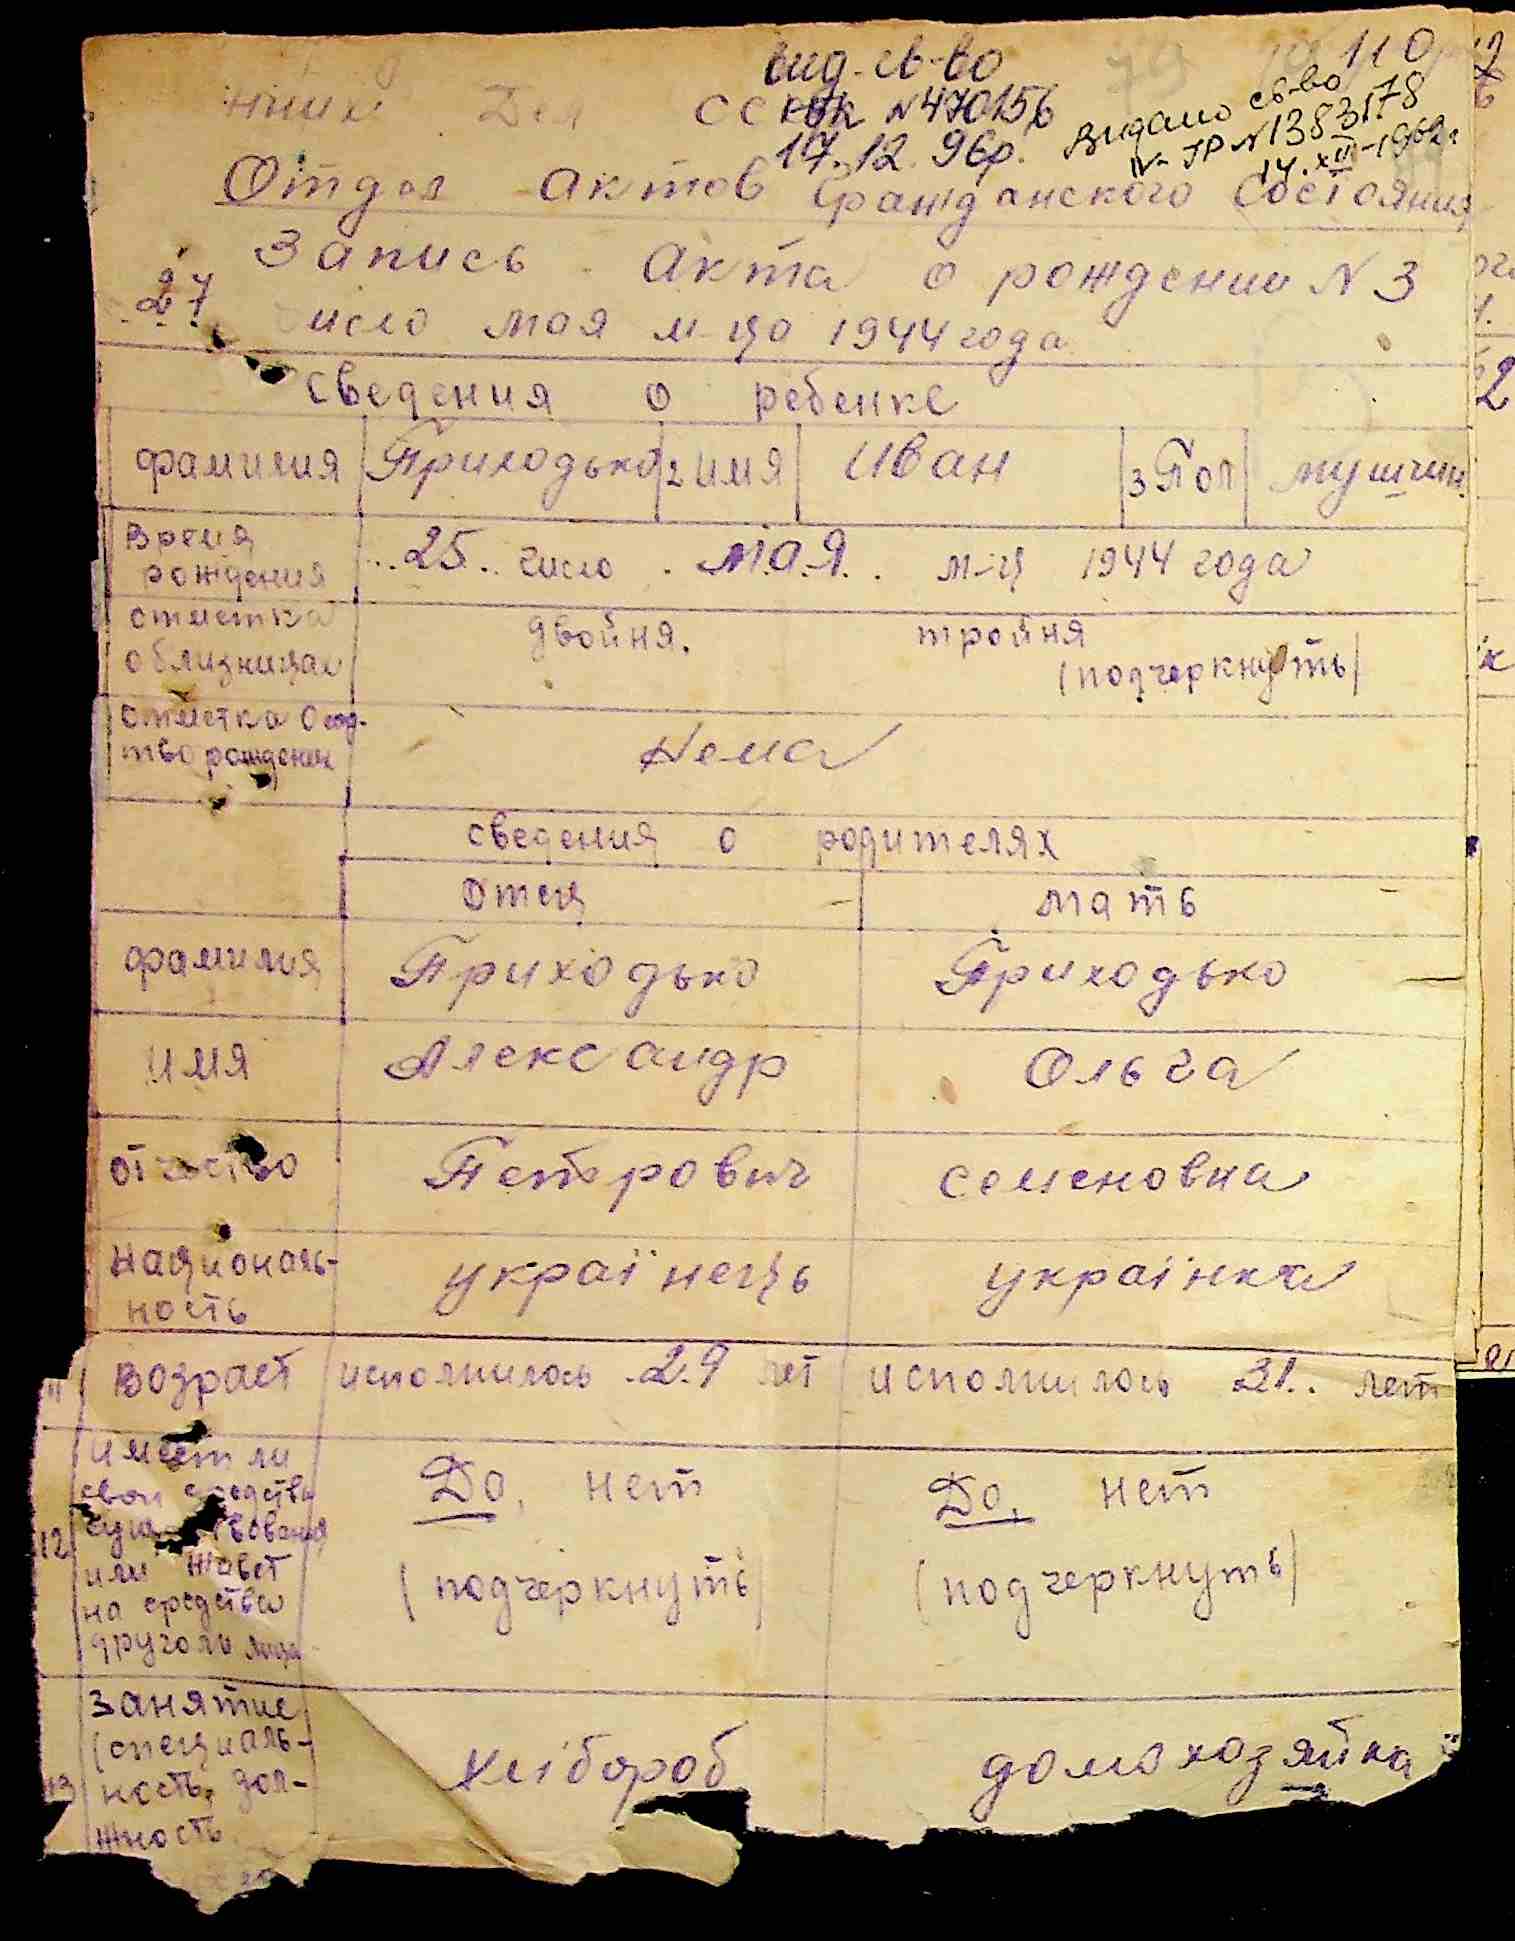 110
вид. св-во
нний Дел СС КБК N470156
17.12.96р.
Видано св-во
IV-ЈР N1383178
14.XII-1962г
Отдел актов Гражданского Состояния
Запись Акта о рождении N 3
27 число мая м-ца 1944 года
Сведения о ребенке
фамилия Приходько 2 имя Иван 3 Пол мушчин.
Время рождения ..25.. число . мая. . м-ц 1944 года
отметка о близнецах двойня. тройня
(подчеркнуть)
отметка о мер-
тво рожденн Нема
сведения о родителях
отец мать
фамилия Приходько Приходько
имя Александр Ольга
отчество Петрович Семеновна
Националь-
ность українець українка
11 возраст исполнилось .29 лет исполнилось 31.. лет
12 имеет ли
свои средства
существования
или живет
на средства
другого лица
Да, нет Да, нет
(подчеркнуть) (подчеркнуть)
13 Занятие
(специаль-
ность, дол-
жность
хлібороб домохозяйка